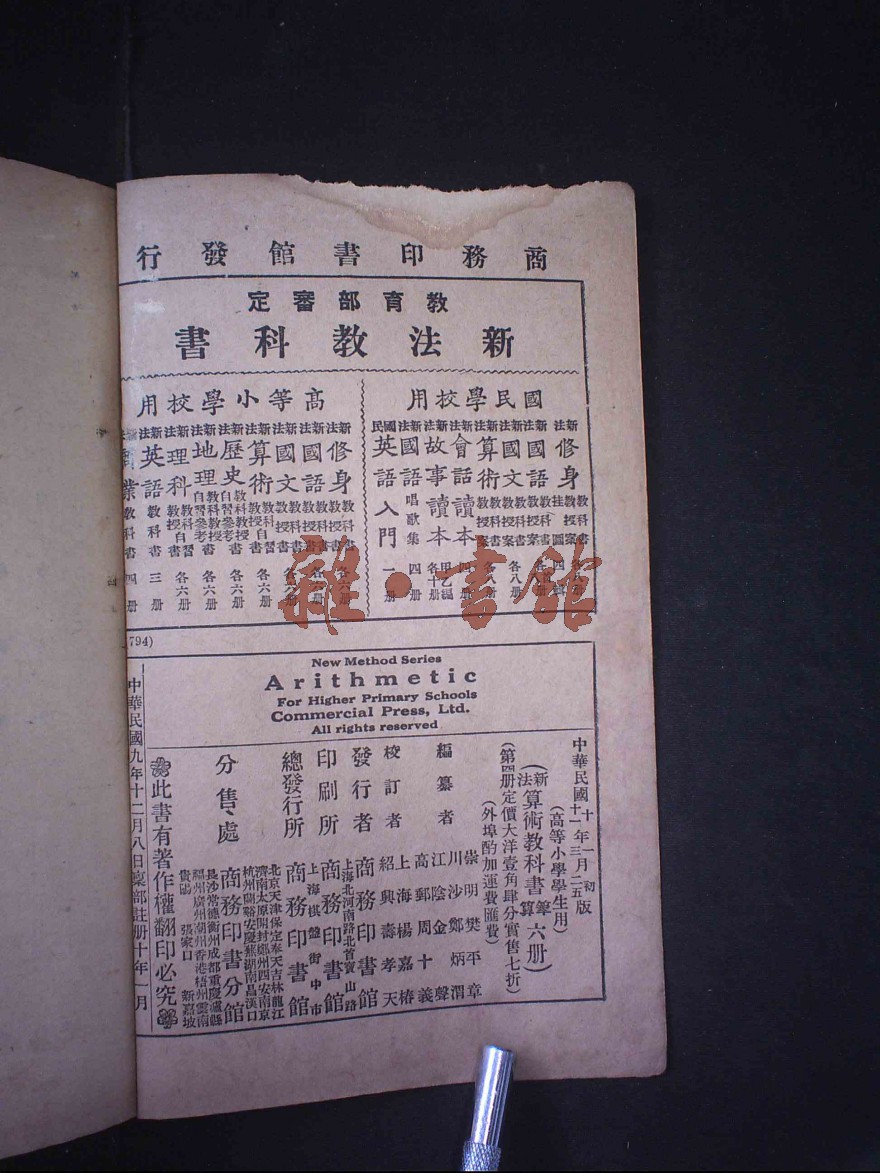 商務印書館發行
教育部審定
新法教科書
國民學校用
新法修身
新法國語
新法國文
新法算術
新法會話讀本
新法故事讀本
新法國語唱歌集 四册
國民英語入門 一册
高等小學校用
新法修身 教科書 教授書 各六册
新法國語 教科書 教授書 各六册
新法國文 教科書 教授書 各六册
新法算術 各六册
新法歷史 各六册
新法地理 各六册
新法理科 各六册
新法英語教科書 三册
業教科書 四册
雜·書館
794)
New Method Series
Arithmetic
For Higher Primary Schools
Commercial Press, Ltd.
All rights reserved
中華民國十一年三月
(高等小學學生用)
新法算術教科書筆算六册)
(第四册定價大洋壹角肆分實售七折)
(外埠酌加運費匯費)
編纂者
崇明樊平章
川沙鄭炳渭
江陰金聲
高郵周十義
校訂者
上海楊嘉椿
紹興壽孝天
發行者 商務印書館
上海北河南路北首寶山路
印刷所 商務印書館
上海棋盤街中市
總發行所 商務印書館
分售處
北京天津保定奉天吉林龍江
濟南太原開封鄭州西安南京
杭州蘭谿安慶蕪湖南昌漢口
商務印書分館
長沙常德衡州成都重慶瀘縣
福州廣州潮州香港梧州雲南
貴陽 張家口 新嘉坡
此書有著作權翻印必究
中華民國九年十二月八日稟部註册十年一月